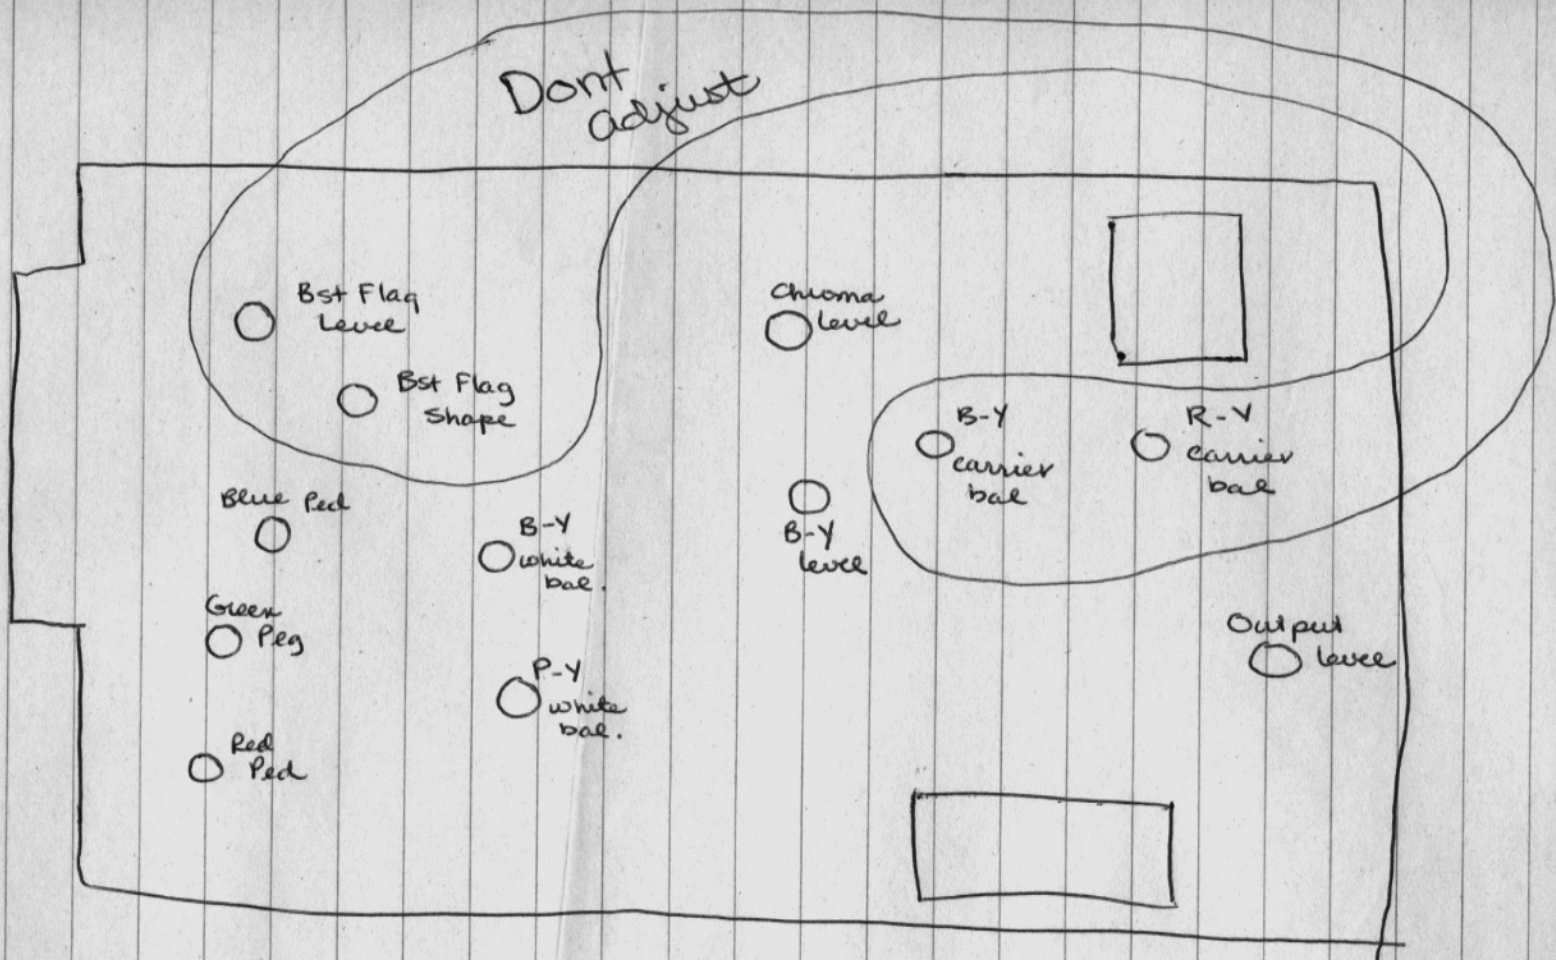 Dont
adjust
Bst Flag
Level
Bst Flag
Shape
Chroma
level
B-Y
carrier
bal
R-Y
carrier
bal
Blue Ped
B-Y
white
bal.
B-Y
level
Green
Peg
P-Y
white
bal.
Output
level
Red
Ped